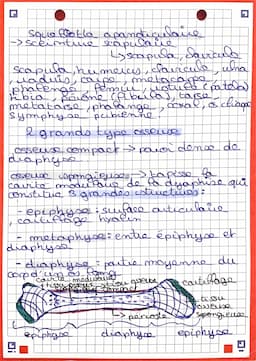 squelette apandiculaire
→ sceinture scapulaire
↳ scapula, clavicula
scapula, humerus, clavicule, ulna
, radius, carpe, métacarpe
phalange, femur,
tibia, carpe,
métatarse, phalange,
symphyse pubienne
2 grands type osseuse
osseuse compact → paroi dense de
diaphyse
osseuse spongieuse → tapisse la
cavité médullaire de la dyaphise qui
constitue 3 grandes structures:
- epiphyse: surface articulaire
, cartilage hyalin
- metaphyse: entre épiphyse et
diaphyse
- diaphyse: partie moyenne du
corp d'un os long
cavité médullaire
cartillage
tissu
osseuse
spongieuse
→ périoste
epiphyse diaphyse epiphyse